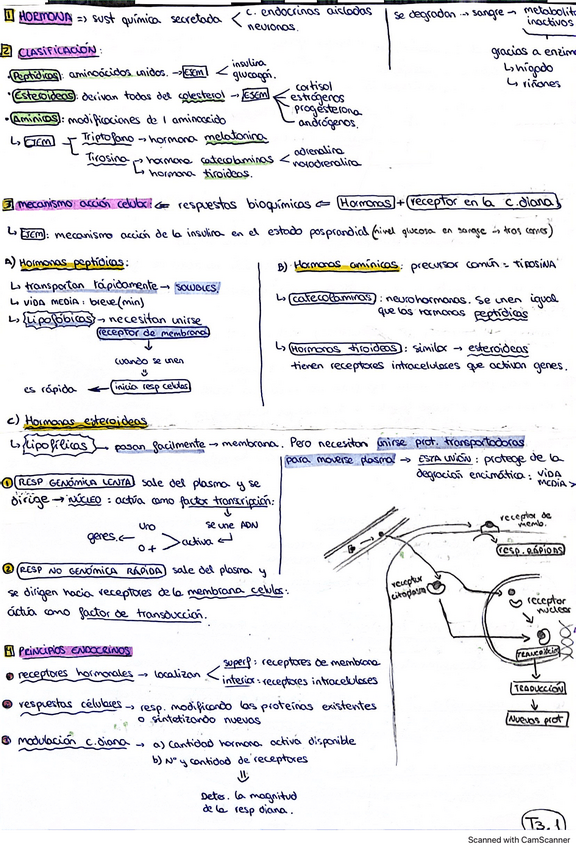 1 HORMONA => sust química secretada < c. endocrinas aisladas
neuronas.
se degradan → sangre → metabolit
inactivos
gracias a enzim
↳ hígado
↳ riñones
2 CLASIFICACIÓN:
• Peptídicas: aminoácidos unidos. → EJEM < insulina
glucagón.
• Esteroideas: derivan todas del colesterol → EJEM < cortisol
estrógenos
progesterona
andrógenos.
• Amínicas: modificaciones de 1 aminoácido
↳ EJEM Triptofano → hormona melatonina
Tirosina ↳ hormona catecolaminas < adrenalina
noradrenalina
↳ hormona tiroideas.
3 mecanismo acción celular: ⇐ respuestas bioquímicas ⇐ Hormonas + receptor en la c. diana
↳ EJEM: mecanismo acción de la insulina en el estado posprandial (nivel glucosa en sangre → tras comer)
A) Hormonas peptídicas:
↳ transportan rápidamente → SOLUBLES.
↳ VIDA MEDIA: breve (min)
↳ Lipofóbicas → necesitan unirse
receptor de membrana
↓
cuando se unen
⇓
es rápida ← inicia resp celular
B) Hormonas amínicas: precursor común = TIROSINA
↳ catecolaminas: neurohormonas. Se unen igual
que las hormonas peptídicas
↳ Hormonas tiroideas: similar → esteroideas
tienen receptores intracelulares que activan genes.
C) Hormonas esteroideas
↳ Lipofílicas → pasan facilmente → membrana. Pero necesitan unirse prot. transportadoras
para moverse plasma → ESTA UNIÓN: protege de la
degración enzimática: VIDA
MEDIA >
1 RESP GENÓMICA LENTA sale del plasma y se
dirige → NÚCLEO: actúa como factor transcripción:
⇓
genes ← uno o + > activa ↵ se une ADN
2 RESP NO GENÓMICA RÁPIDA sale del plasma y
se dirigen hacia receptores de la membrana celular:
áctúa como factor de transducción.
receptor de
memb.
RESP. RÁPIDAS
receptor
citoplasma
receptor
nuclear
TRADUCCIÓN
Nuevas prot
4 PRINCIPIOS ENDOCRINOS
1 receptores hormonales → localizan < superf: receptores de membrana
interior: receptores intracelulares
2 respuestas célulares → resp. modificando las proteínas existentes
o sintetizando nuevas
3 modulación c. diana → a) Cantidad hormona activa disponible
b) Nº y cantidad de receptores
⇓
Deter. la magnitud
de la resp diana.
T3.1
Scanned with CamScanner